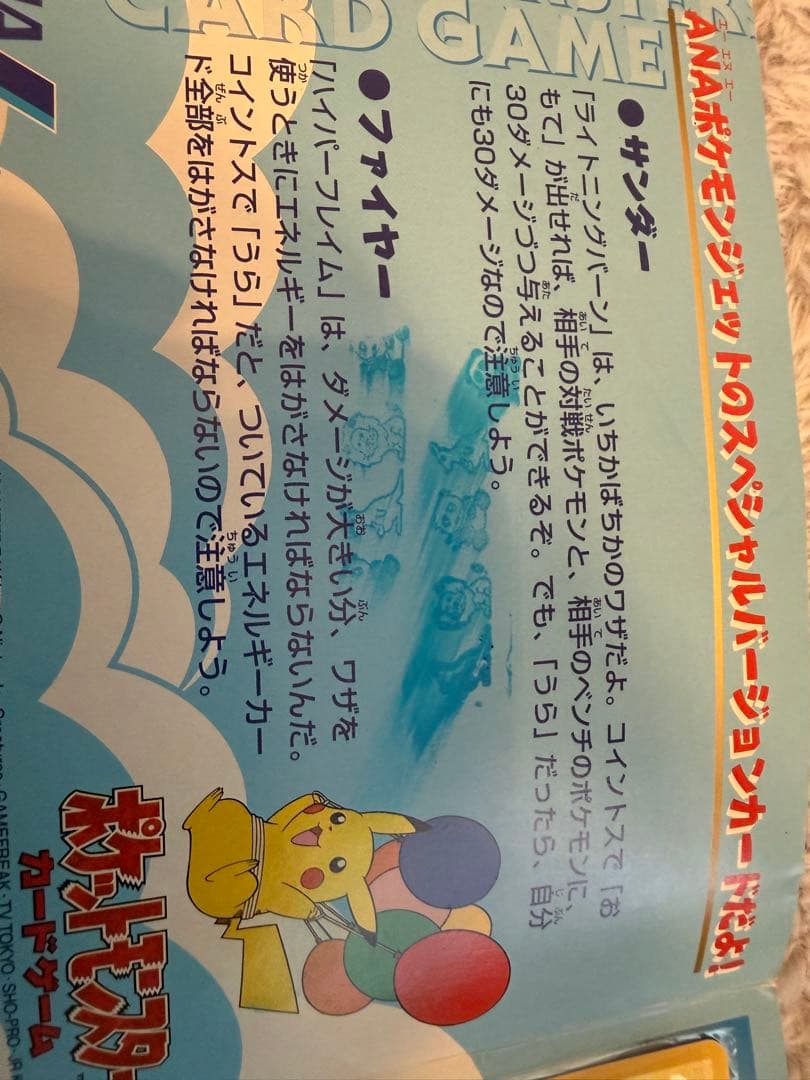 CARD GAME
ANAポケモンジェットのスペシャルバージョンカードだよ!
●サンダー
「ライトニングバーン」は、いちかばちかのワザだよ。コイントスで「お
もて」が出せれば、相手の対戦ポケモンと、相手のベンチのポケモンに、
30ダメージづつ与えることができるぞ。でも、「うら」だったら、自分
にも30ダメージなので注意しよう。
●ファイヤー
「ハイパーフレイム」は、ダメージが大きい分、ワザを
使うときにエネルギーをはがさなければならないんだ。
コイントスで「うら」だと、ついているエネルギーカー
ド全部をはがさなければならないので注意しよう。
ポケットモンスター
カードゲーム
Creatures, GAMEFREAK・TV TOKYO・SHO-PRO・JR